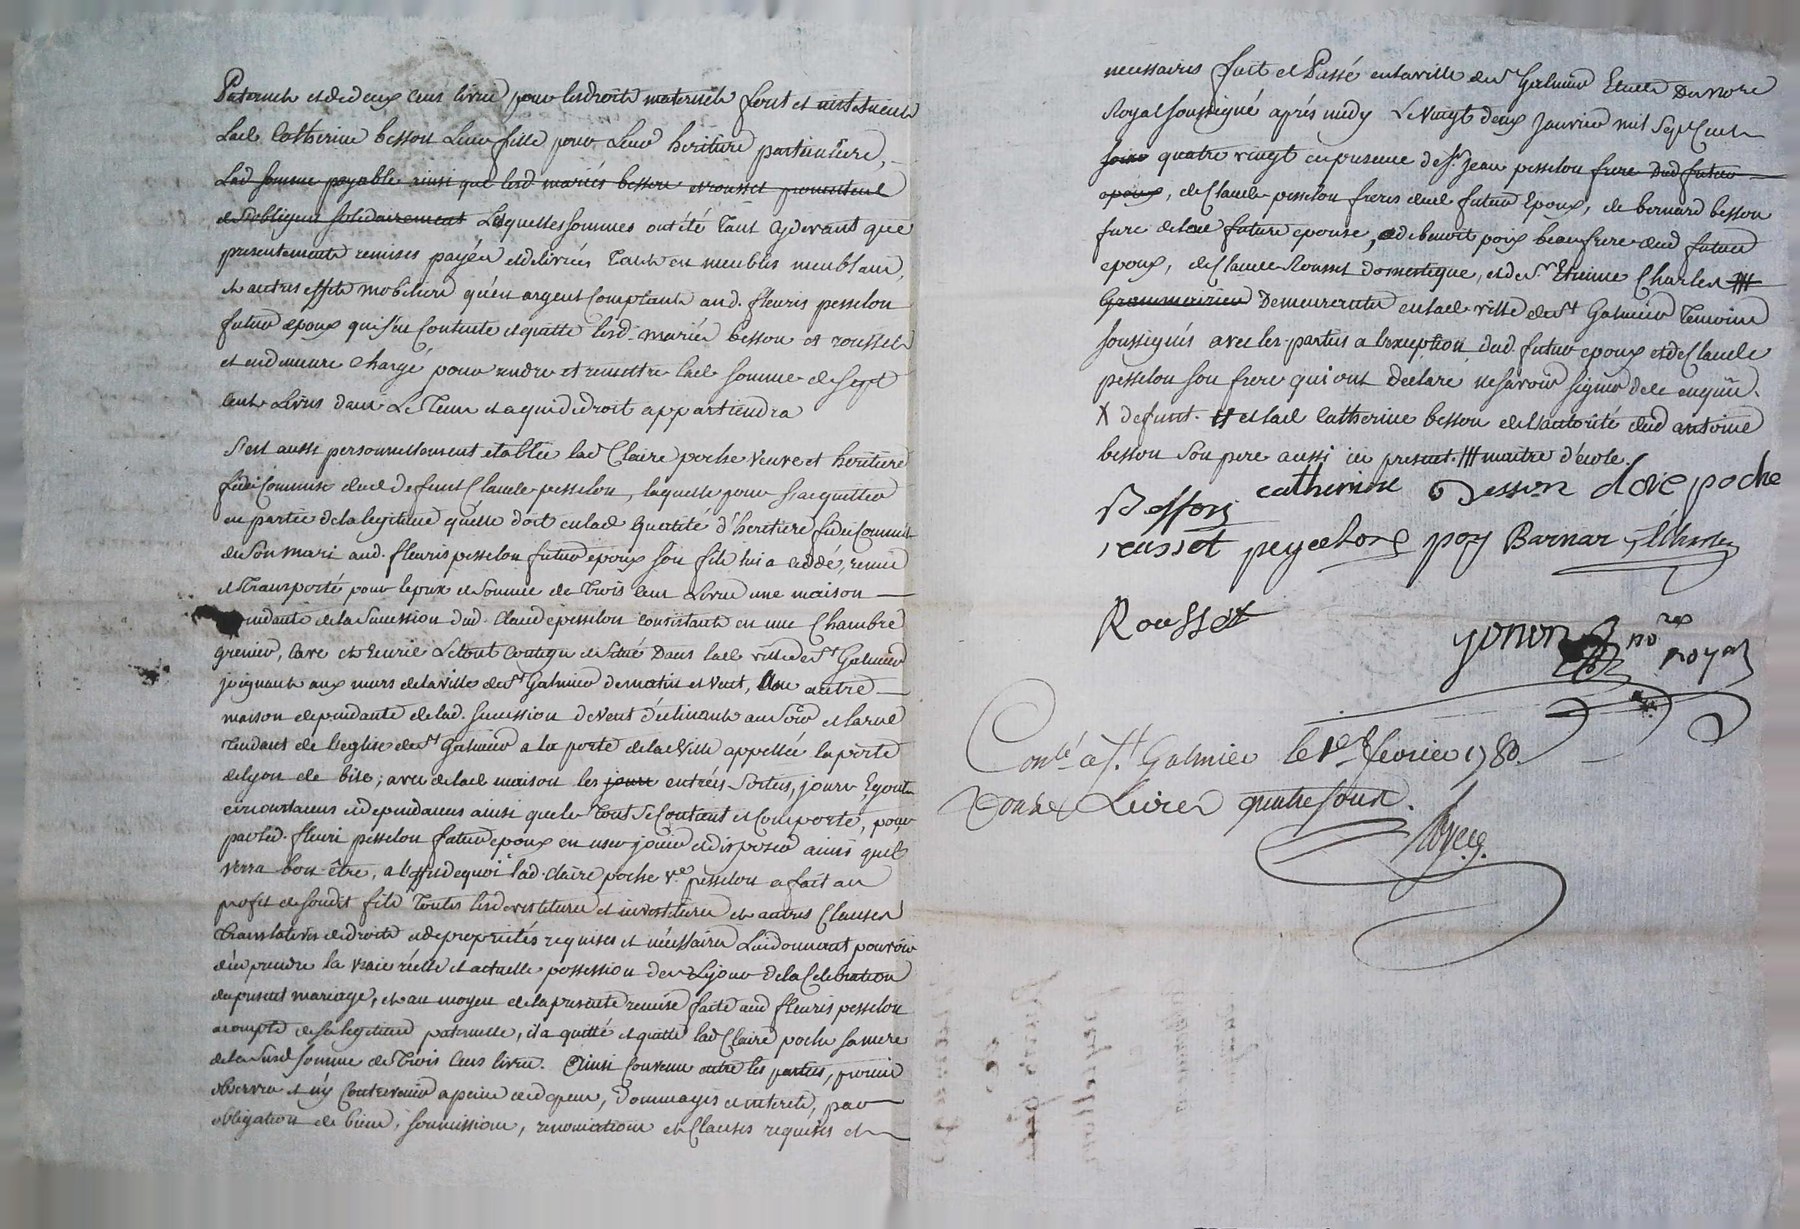 Paternels et de deux cens livres pour les droits maternels font et instituent
lad. Catherine besson leur fille pour leur héritiere particulière,
Lad somme payable ainsi que lesd mariés besson et rousset promettent
et s'obligent solidairement Lesquelles sommes ont été tant cydevant que
presentement remises payées et delivrées tant en meubles meublans,
et autres effets mobiliers qu'en argent comptant aud. fleuris pesselon
futur epoux qui s'en contente et quitte lesd. mariés besson et rousset
et en demeure chargé pour rendre et remettre lad somme de sept
cents Livres dans le tems et a qui de droit appartiendra
S'est aussi personnellement etablie lad Claire poche veuve et heritiere
fideicommise dud defunt Claude pesselon, laquelle pour s'acquitter
en partie de la legitime qu'elle doit en lad qualité d'heritiere fideicommise
de son mari aud. fleuris pesselon futur epoux son fils lui a cedé, remis
et transporté pour le prix et somme de trois cens Livres une maison
dependante de la sucession dud. Claude pesselon consistante en une Chambre
grenier, cave et ecurie Le tout contigu et situé Dans lad ville de St Galmier
joignant aux murs de la ville de St Galmier de matin et vent, Une autre
maison dependante de lad. sucession de vent declinant au soir et la rue
tendant de l'eglise de St Galmier a la porte de lad ville appellée la porte
de lyon de bise; avec de lad maison les jours entrées sorties, jours, Egouts
circonstances et dependances ainsi que le tout se contient et comporte, pour
par led. fleuri pesselon futur epoux en user jouir et disposer ainsi quil
verra bon être, a l'effet de quoi lad. claire poche ve. pesselon a fait au
profit de sondit fils toutes les devestitures et investitures et autres Clauses
translatives de droits et de propriétés requises et nécessaires Lui donnant pouvoir
d'en prendre la vraie réelle et actuelle possession des Le jour de la Celebration
du present mariage, et au moyen de la presente remise faite aud fleuris pesselon
acompte de sa legitime paternelle, il a quitté et quitte lad Claire poche sa mere
de la susd somme de trois cens livres. Ainsi convenu entre les parties, promis
observer et n'y contrevenir a peine de depens, Dommages et interets, par
obligation de biens, soumissions, renonciations et Clauses requises et
necessaires fait et Passé en la ville de St Galmier Etude Du nore
Royal soussigné aprés midy Le vingt deux Janvier mil Sept Cent
soix quatre vingt en presence de Sr. Jean pesselon frere dud futur
epoux, de Claude pesselon freres dud futur Epoux, de bernard besson
frere de lad future epouse, et de benoit poix beaufrere dud futur
epoux, de Claude Rousset domestique, et de Sr Etienne Charles #
Grammairien Demeurants en lad ville de St Galmier temoins
soussignés avec les parties a l'exception dud. futur epoux et de Claude
pesselon son frere qui ont declaré ne savoir signer de ce enquis.
X defunt. # et lad Catherine besson de l'autorité dud antoine
besson son pere aussi ici present. # maitre d'école.
Besson catherine Besson clere poche
rousset peyselon poy Barnar E. Charles
Rousset
yonon nore royal
Conlé a St. Galmier le 1er fevrier 1780.
quatre sous.